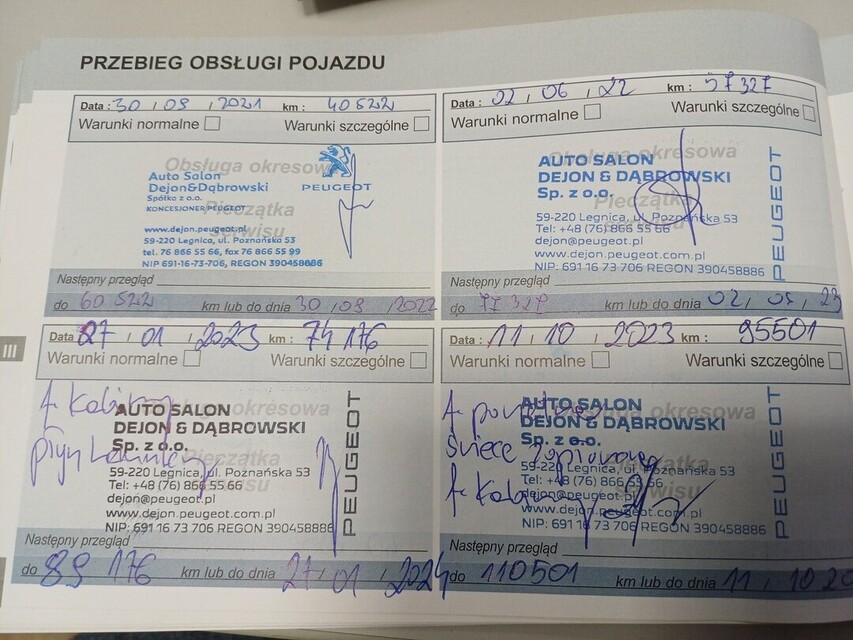 PRZEBIEG OBSŁUGI POJAZDU
Data : 30 / 09 / 2021 km : 40522
Warunki normalne Warunki szczególne
Obsługa okresowa
Pieczątka
serwisu
Auto Salon
Dejon&Dąbrowski
Spółka z o.o.
KONCESJONER PEUGEOT
PEUGEOT
www.dejon.peugeot.pl
59-220 Legnica, ul. Poznańska 53
tel. 76 866 55 66, fax 76 866 55 99
NIP 691-16-73-706, REGON 390458886
Następny przegląd
do 60522 km lub do dnia 30 / 09 / 2022
Data : 02 / 06 / 22 km : 57327
Warunki normalne Warunki szczególne
Obsługa okresowa
Pieczątka
serwisu
AUTO SALON
DEJON & DĄBROWSKI
Sp. z o.o.
59-220 Legnica, ul. Poznańska 53
Tel: +48 (76) 866 55 66
dejon@peugeot.pl
www.dejon.peugeot.com.pl
NIP: 691 16 73 706 REGON 390458886
PEUGEOT
Następny przegląd
do 77327 km lub do dnia 02 / 23
III
Data : 27 / 01 / 2023 km : 74176
Warunki normalne Warunki szczególne
Obsługa okresowa
Pieczątka
serwisu
f. Kabinowy
płyn hamulcowy
AUTO SALON
DEJON & DĄBROWSKI
Sp. z o.o.
59-220 Legnica, ul. Poznańska 53
Tel: +48 (76) 866 55 66
dejon@peugeot.pl
www.dejon.peugeot.com.pl
NIP: 691 16 73 706 REGON 390458886
PEUGEOT
Następny przegląd
do 89 176 km lub do dnia 27 / 01 / 2024
Data : 11 / 10 / 2023 km : 95501
Warunki normalne Warunki szczególne
Obsługa okresowa
Pieczątka
serwisu
f. powietrza
świece zapłonowe
f. Kabinowy
AUTO SALON
DEJON & DĄBROWSKI
Sp. z o.o.
59-220 Legnica, ul. Poznańska 53
Tel: +48 (76) 866 55 66
dejon@peugeot.pl
www.dejon.peugeot.com.pl
NIP: 691 16 73 706 REGON 390458886
PEUGEOT
Następny przegląd
do 110501 km lub do dnia 11 / 10 20